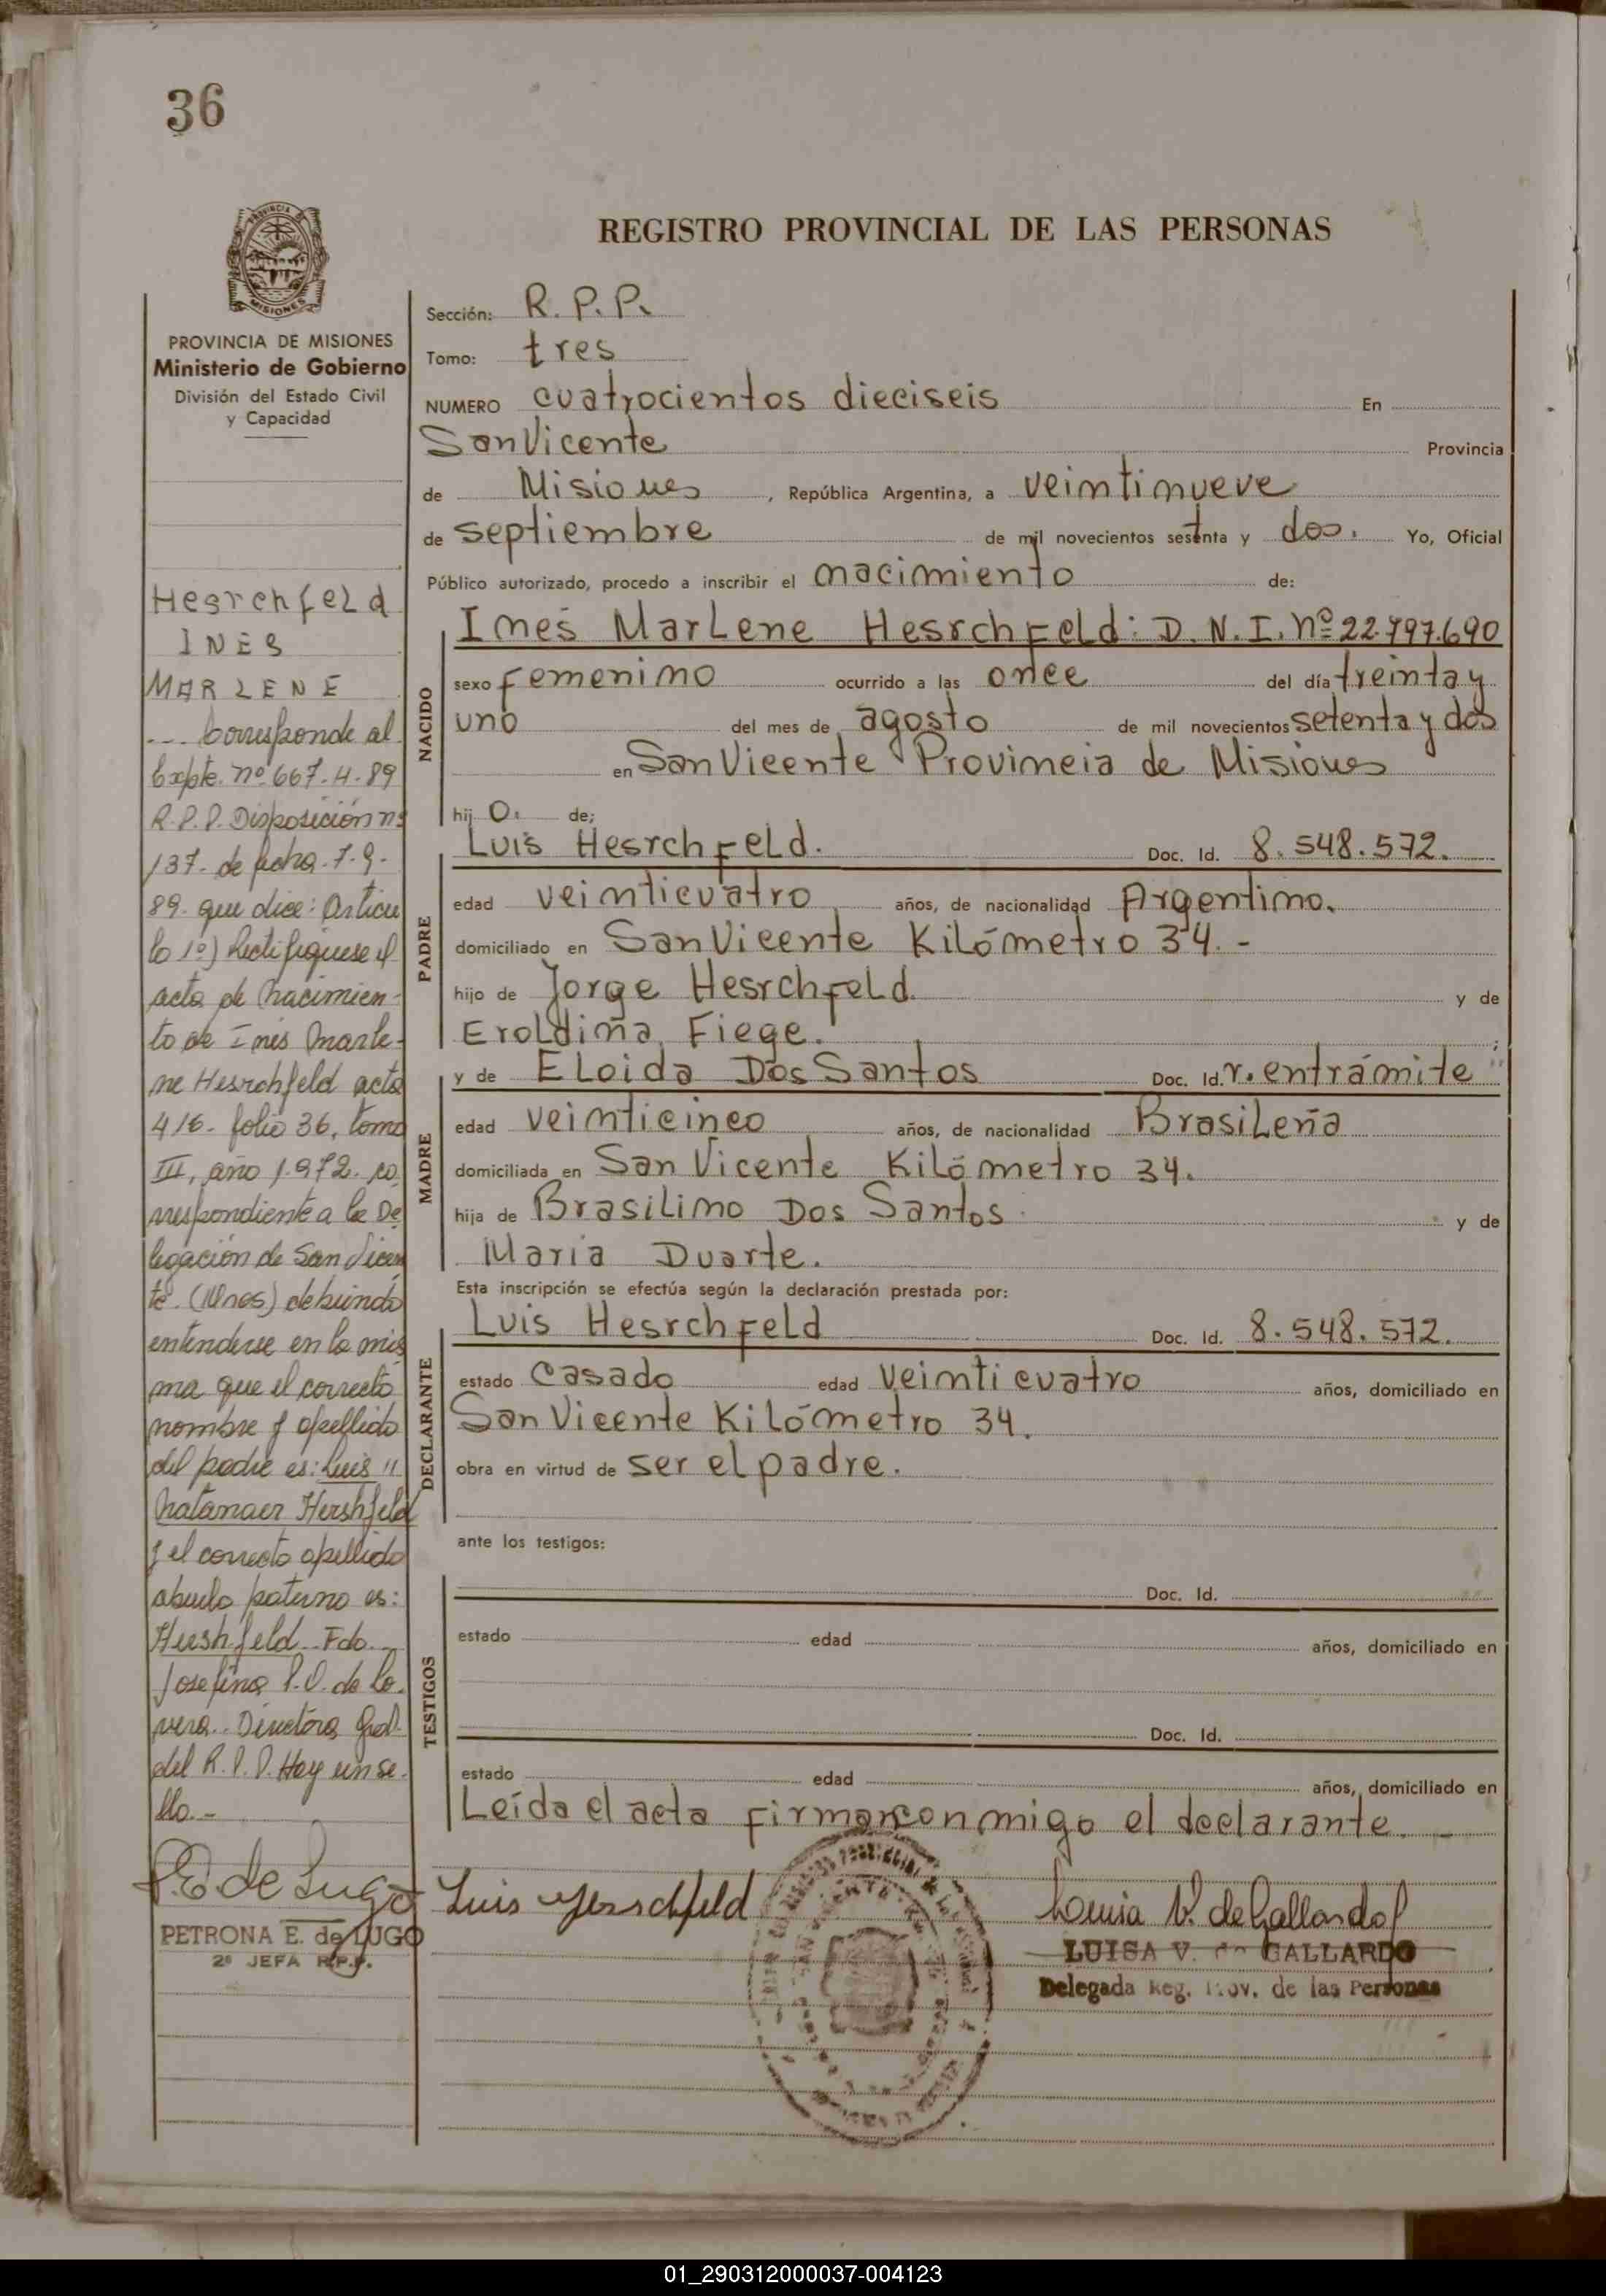 36
REGISTRO PROVINCIAL DE LAS PERSONAS
PROVINCIA DE MISIONES
Ministerio de Gobierno
División del Estado Civil
y Capacidad
Hesrchfeld
INES
MARLENE
... Corresponde al
Expte. nº 667-H-89
R.P.P. Disposición nº
137- de fecha 7-9-
89- que dice: Articu
lo 1º) Rectifíquese el
acta de nacimien-
to de Inés Marle-
ne Hesrchfeld acta
416- folio 36, tomo
III, año 1.972. co
rrespondiente a la De
legación de San Vicen
te. (Mnes) debiendo
entenderse en la mis
ma que el correcto
nombre y apellido
del padre es: Luis "
Natanaer Hershfeld
y el correcto apellido
abuelo paterno es:
Hershfeld. Fdo.
Josefina P.O. de Lo.
vera.. Directora Gral.
del R.P.P. Hay un se.
llo.-
P.E de Lugo
PETRONA E. de LUGO
2ª JEFA R.P.P.
Sección: R.P.P.
Tomo: tres
NUMERO cuatrocientos dieciseis En
San Vicente Provincia
de Misiones, República Argentina, a veintinueve
de septiembre de mil novecientos setenta y dos. Yo, Oficial
Público autorizado, procedo a inscribir el nacimiento de:
NACIDO
Inés Marlene Hesrchfeld: D.N.I. nº 22.797.690
sexo femenino ocurrido a las once del día treinta y
uno del mes de agosto de mil novecientos setenta y dos
en San Vicente Provincia de Misiones
hij o. de:
PADRE
Luis Hesrchfeld. Doc. Id. 8.548.572.
edad veinticuatro años, de nacionalidad Argentino.
domiciliado en San Vicente Kilómetro 34.-
hijo de Jorge Hesrchfeld. y de
Eroldina Fiege. ;
MADRE
y de Eloida Dos Santos Doc. Id. r. entrámite
edad veinticinco años, de nacionalidad Brasileña
domiciliada en San Vicente Kilómetro 34.
hija de Brasilino Dos Santos y de
Maria Duarte.
Esta inscripción se efectúa según la declaración prestada por:
DECLARANTE
Luis Hesrchfeld Doc. Id. 8.548.572.
estado casado edad veinticuatro años, domiciliado en
San Vicente Kilómetro 34.
obra en virtud de ser el padre.
ante los testigos:
TESTIGOS
Doc. Id.
estado edad años, domiciliado en
Doc. Id.
estado edad años, domiciliado en
Leída el acta firman conmigo el declarante.
Luis Herschfeld
Louisa V. de Gallardo
LUISA V. de GALLARDO
Delegada Reg. Prov. de las Personas
01_290312000037-004123